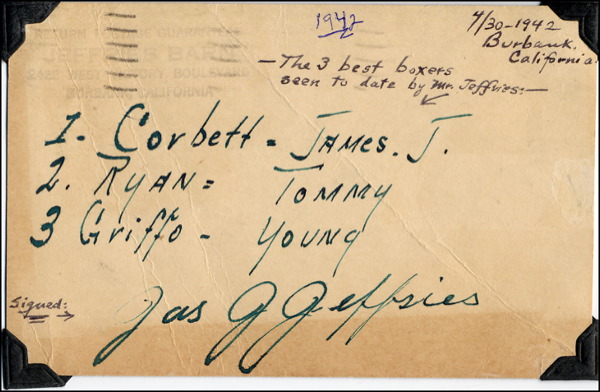 1942
4/30-1942
Burbank,
California.
RETURN POSTAGE GUARANTEED
JEFFRIES BARN
WEST VICTORY BOULEVARD
BURBANK, CALIFORNIA
— The 3 best boxers
seen to date by Mr. Jeffries:—
1. Corbett = JAMES. J.
2. RYAN = TOMMY
3 Griffo - YOUNG
Signed:
Jas J Jeffries